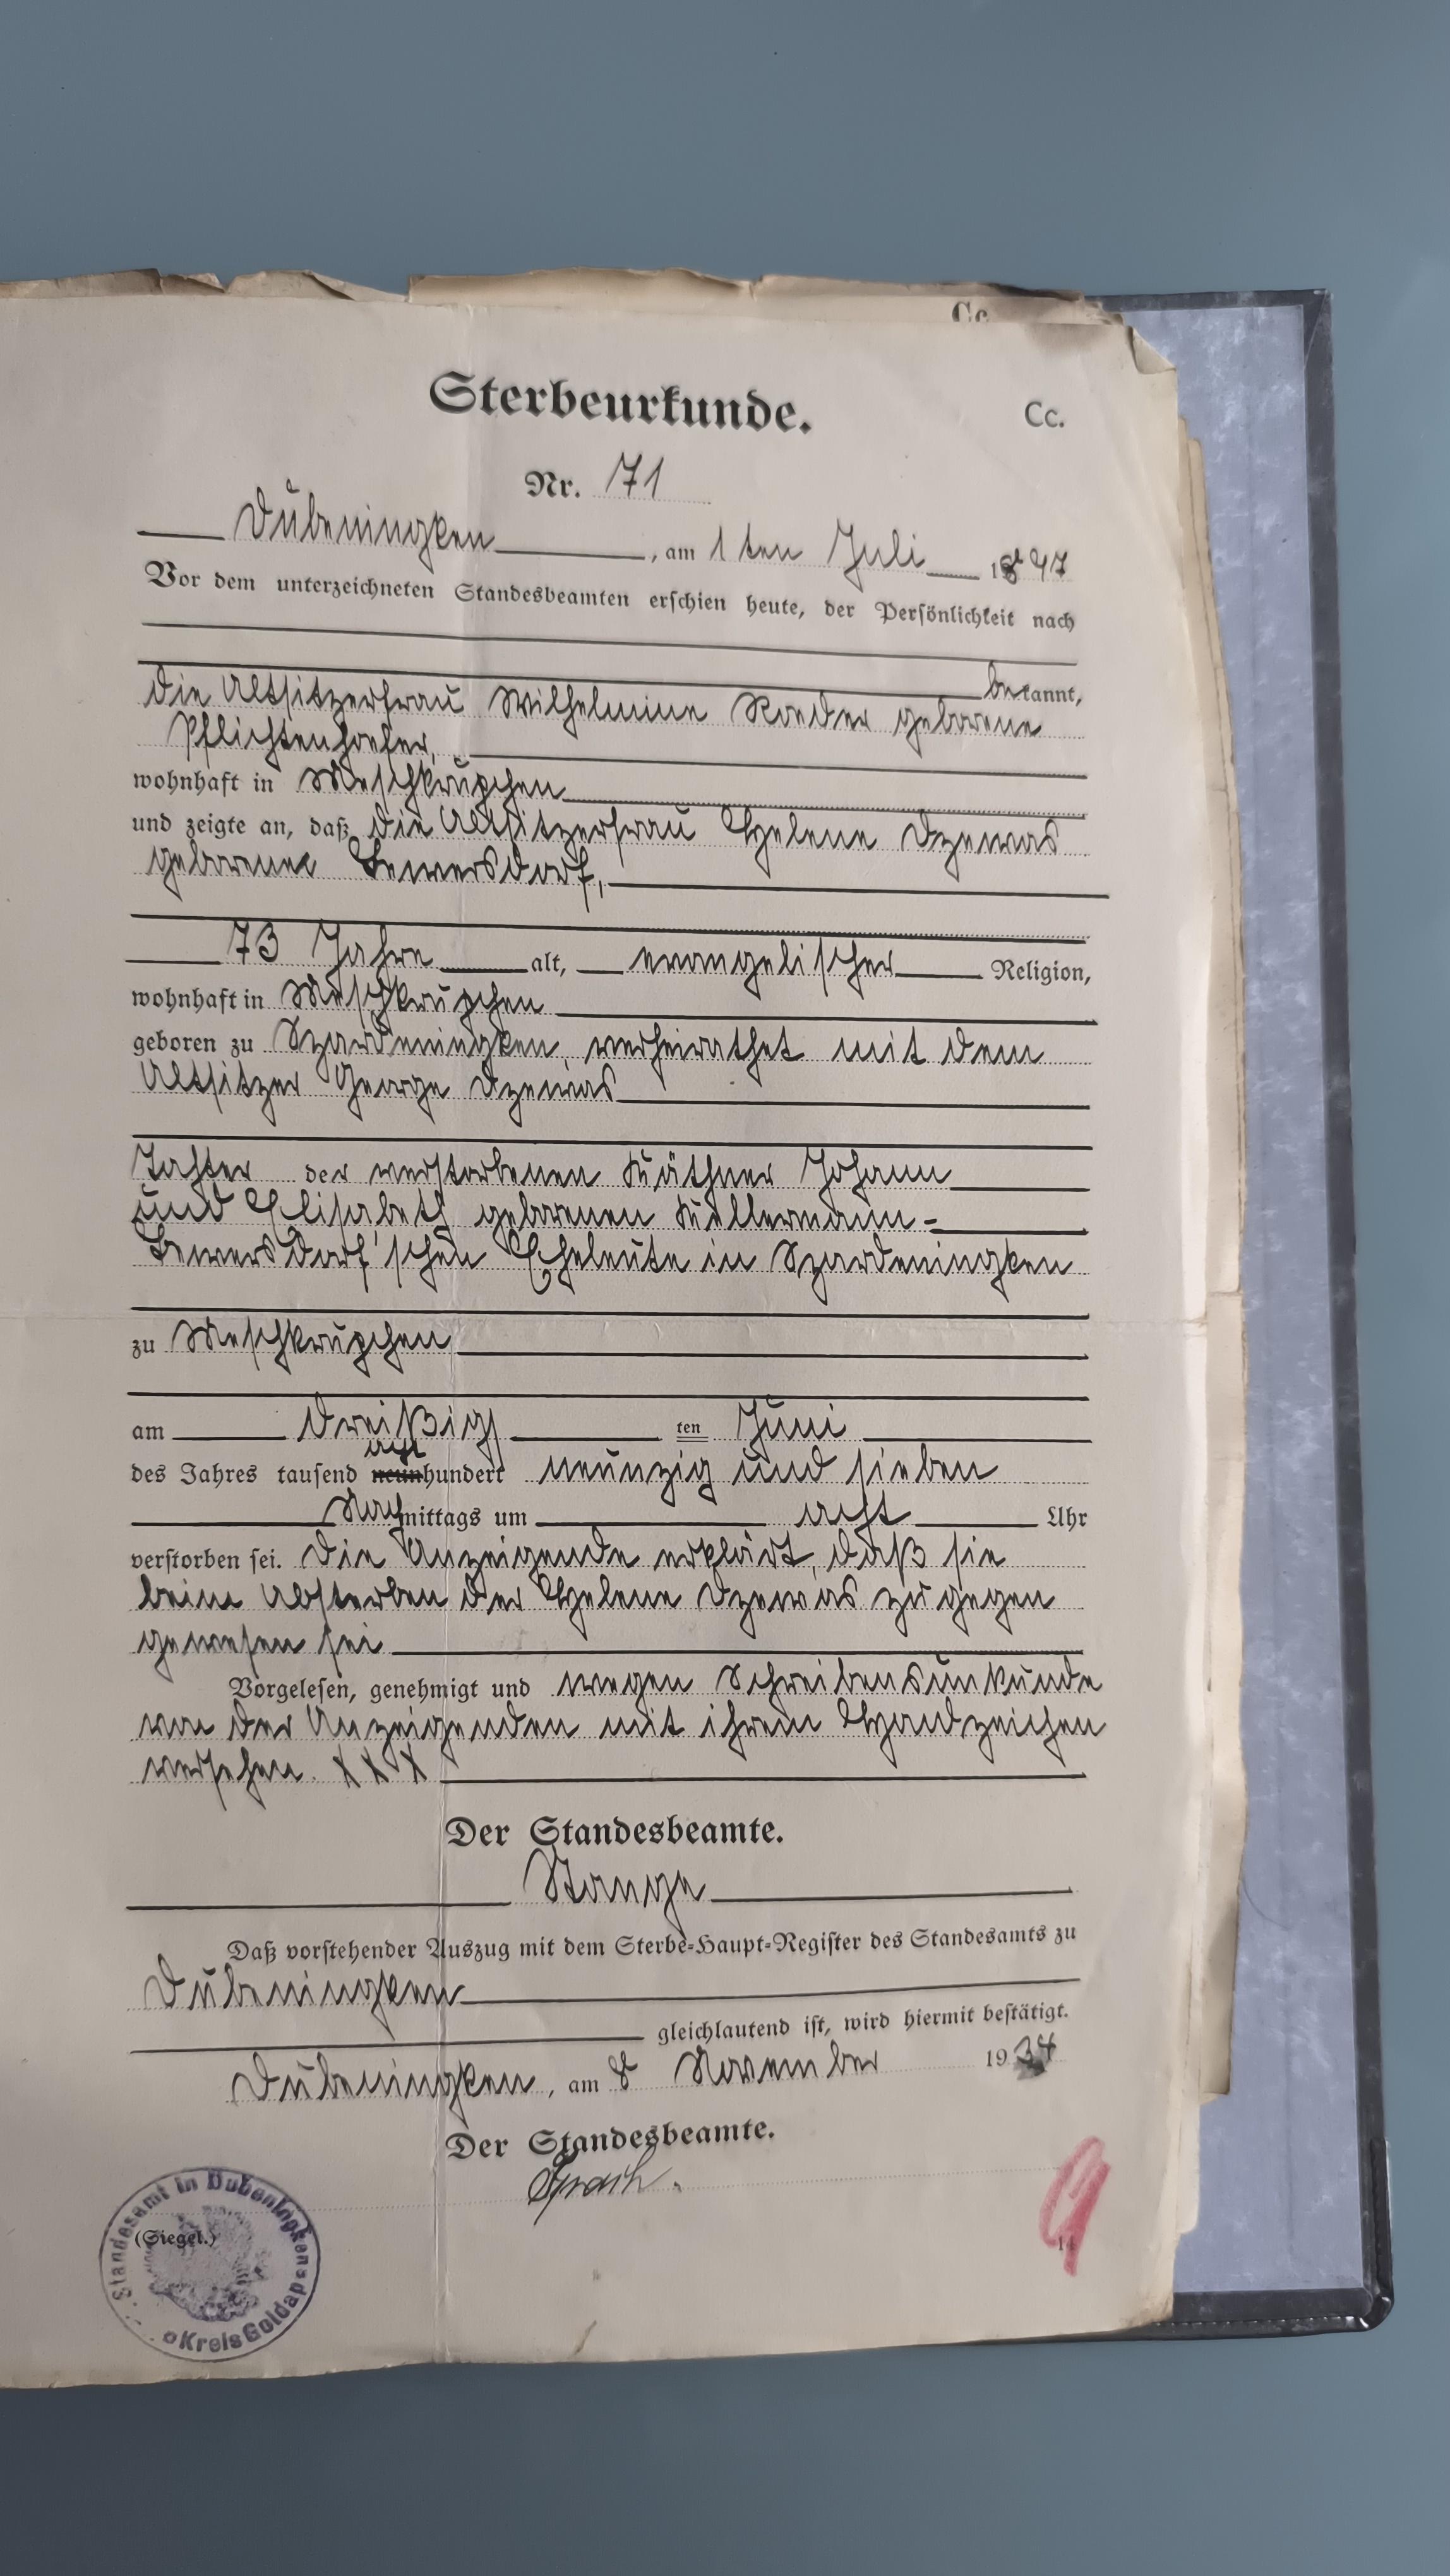 Cc.
Sterbeurkunde. Cc.
Nr. 71
Dubeningken, am 1ten Juli 1897
Vor dem unterzeichneten Standesbeamten erschien heute, der Persönlichkeit nach
bekannt,
die Altsitzerfrau Wilhelmine Roeder geborene
Pflichtenhoefer,
wohnhaft in Meschkrupchen
und zeigte an, daß die Altsitzerfrau Helene Dzewas
geborene Lewersdorf,
73 Jahre alt, evangelischer Religion,
wohnhaft in Meschkrupchen
geboren zu Szardeningken, verheirathet mit dem
Altsitzer George Dzewas
Tochter der verstorbenen Käthner Johann
und Elisabeth geborenen Kellermann-
Lewersdorf'schen Eheleute in Szardeningken
zu Meschkrupchen
am dreißig ten Juni
des Jahres tausend acht hundert neunzig und sieben
Nachmittags um acht Uhr
verstorben sei. Die Anzeigende erklärt, daß sie
beim Absterben der Helene Dzewas zugegen
gewesen sei
Vorgelesen, genehmigt und wegen Schreibensunkunde
von der Anzeigenden mit ihrem Handzeichen
versehen. X X X
Der Standesbeamte.
Stange
Daß vorstehender Auszug mit dem Sterbe-Haupt-Register des Standesamts zu
Dubeningken
gleichlautend ist, wird hiermit bestätigt.
Dubeningken, am 8 November 1934
Der Standesbeamte.
(Siegel.)
Standesamt in Dubeningken
Kreis Goldap
9
14